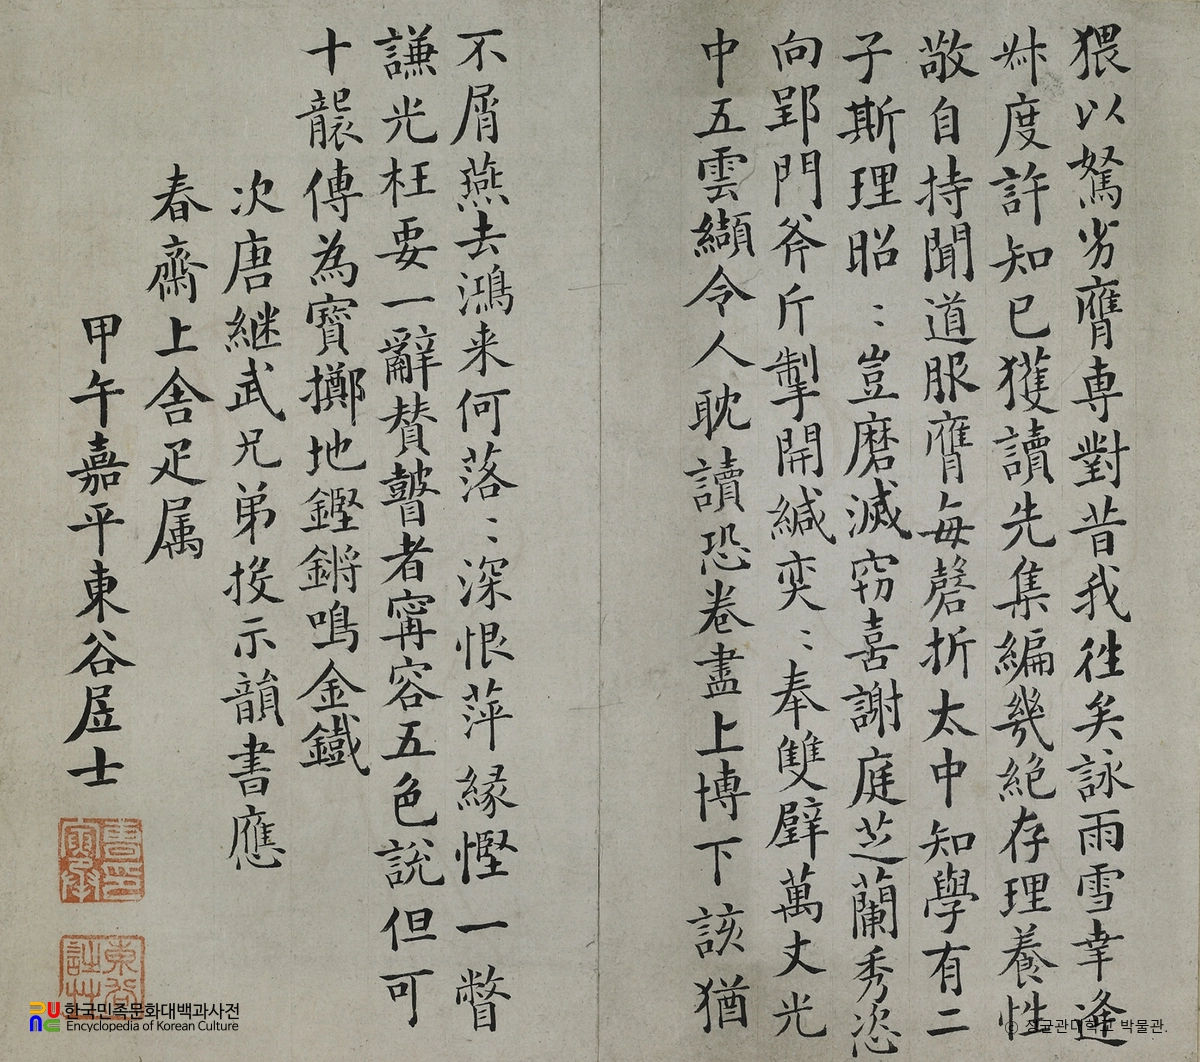 猥以駑劣膺専對昔我徃矣詠雨雪幸逢
叔度許知已獲讀先集編幾絶存理養性
敬自持聞道服膺每磬折太中知學有二
子斯理昭〻豈磨滅窃喜謝庭芝蘭秀恣
向郢門斧斤掣開緘奕〻奉雙璧萬丈光
中五雲纈令人耽讀恐卷盡上博下該猶
不屑燕去鴻来何落〻深恨萍緣慳一瞥
謙光枉要一辭賛瞽者寗容五色說但可
十襲傳為寳擲地鏗鏘鳴金鐵
次唐継武兄弟投示韻書應
春齋上舎疋属
甲午嘉平東谷居士
한국민족문화대백과사전
Encyclopedia of Korean Culture
ⓒ 성균관대학교 박물관.